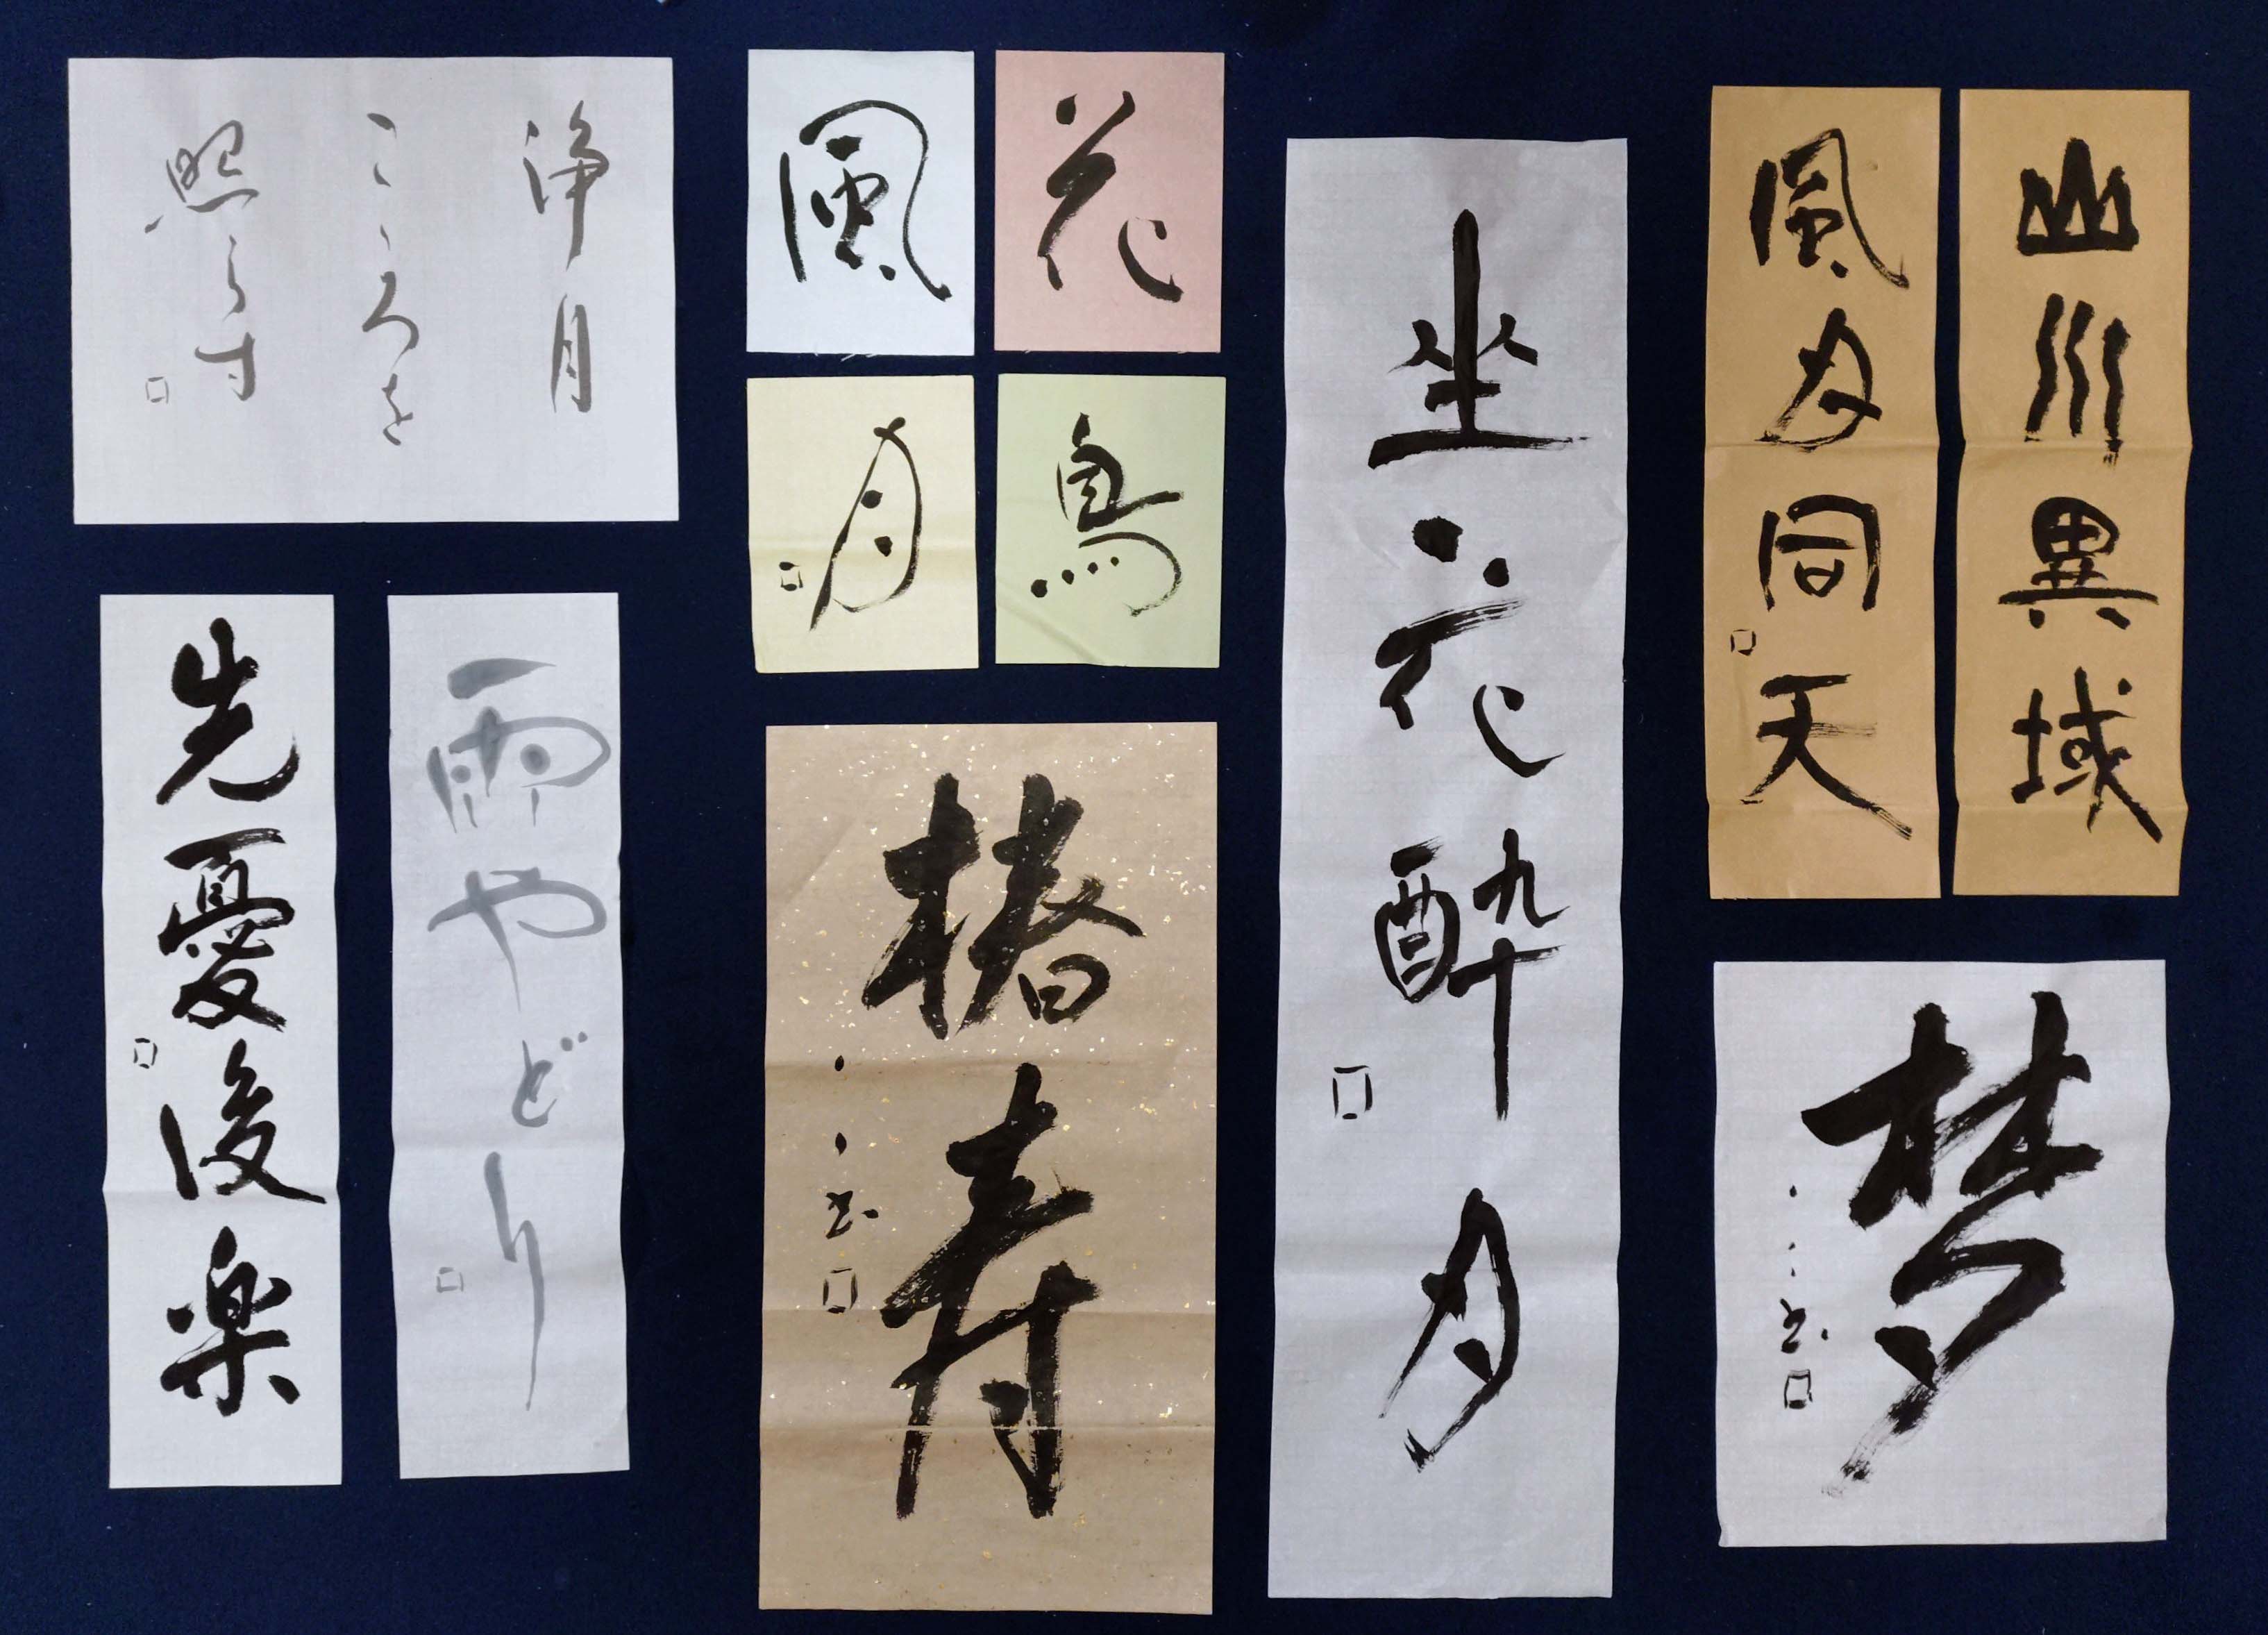 山川異域
風月同天
夢
書
坐花酔月
花
鳥
風
月
椿寿
書
浄月
こころを
照らす
雨やどり
先憂後楽